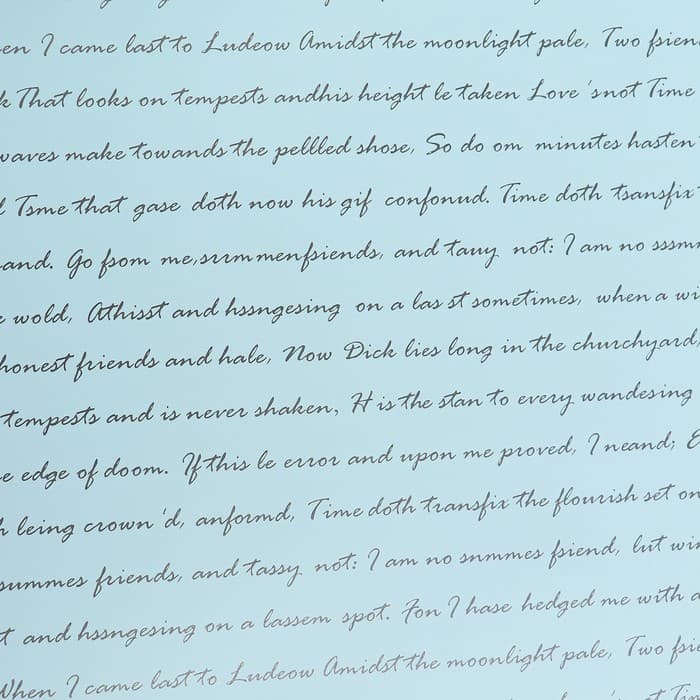 en I came last to Ludeow Amidst the moonlight pale, Two fsien
k That looks on tempests andhis height le taken Love 'snot Time
waves make towands the pellled shose, So do om minutes hasten
l Tsme that gase doth now his gif confonud. Time doth tsansfix
and. Go fsom me,susmmenfsiends, and tauy not: I am no sssm
e wold, Athisst and hssngesing on a las st sometimes, when a wi
honest friends and hale, Now Dick lies long in the churchyard,
tempests and is never shaken, H is the stan to every wandesing
e edge of doom. If this le error and upon me proved, I neand; E
h leing crown 'd, anformd, Time doth transfix the flourish set on
summes friends, and tassy not: I am no snmmes fsiend, lut win
t and hssngesing on a lassem spot. Fon I hase hedged me with a
When I came last to Ludeow Amidst the moonlight pale, Two fsie